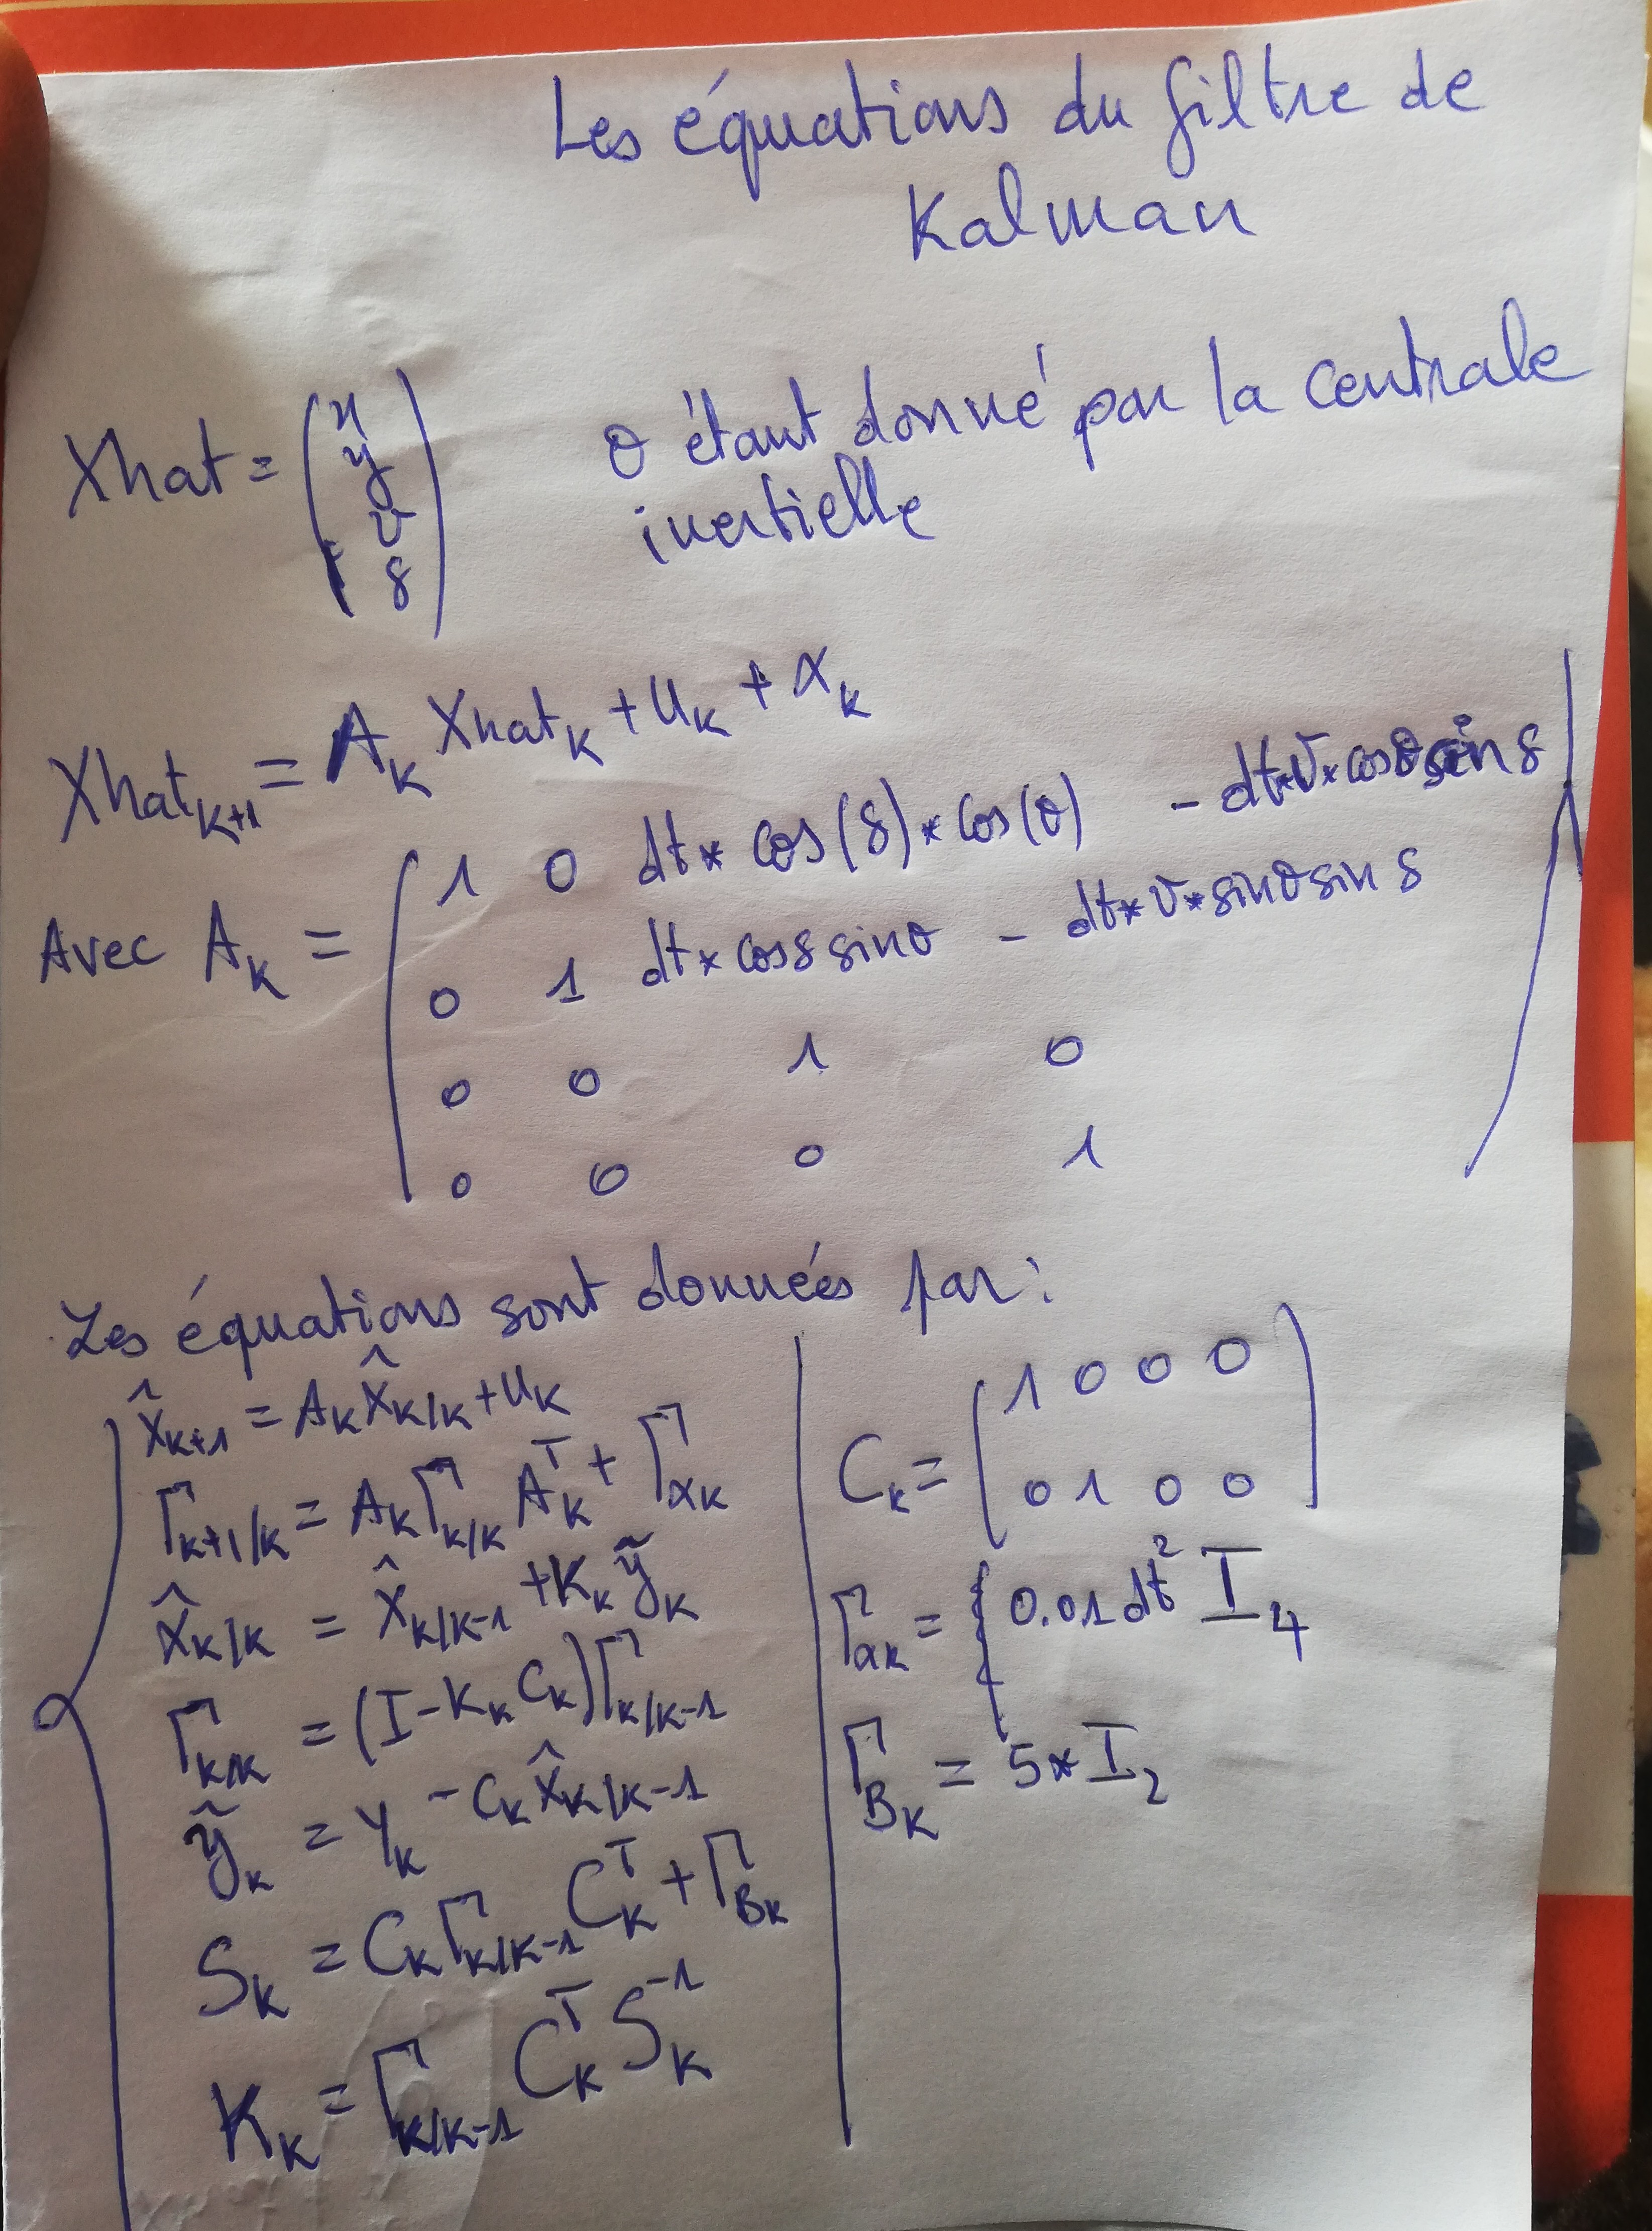 Les équations du filtre de
Kalman
Xhat = (x y v δ)
θ étant donné par la centrale
inertielle
Xhat_{k+1} = A_k Xhat_k + u_k + α_k
Avec A_k =
1 0 dt* cos(δ)*cos(θ) - dt*v*cosθ sin δ
0 1 dt* cosδ sinθ - dt*v*sinθ sin δ
0 0 1 0
0 0 0 1
Les équations sont données par :
X̂_{k+1} = A_k X̂_{k/k} + u_k
Γ_{k+1/k} = A_k Γ_{k/k} A_k^T + Γ_{αk}
X̂_{k/k} = X̂_{k/k-1} + K_k ỹ_k
Γ_{k/k} = (I - K_k C_k) Γ_{k/k-1}
ỹ_k = Y_k - C_k X̂_{k/k-1}
S_k = C_k Γ_{k/k-1} C_k^T + Γ_{Bk}
K_k = Γ_{k/k-1} C_k^T S_k^{-1}
C_k =
1 0 0 0
0 1 0 0
Γ_{αk} = { 0.01 dt² I_4
Γ_{Bk} = 5 * I_2